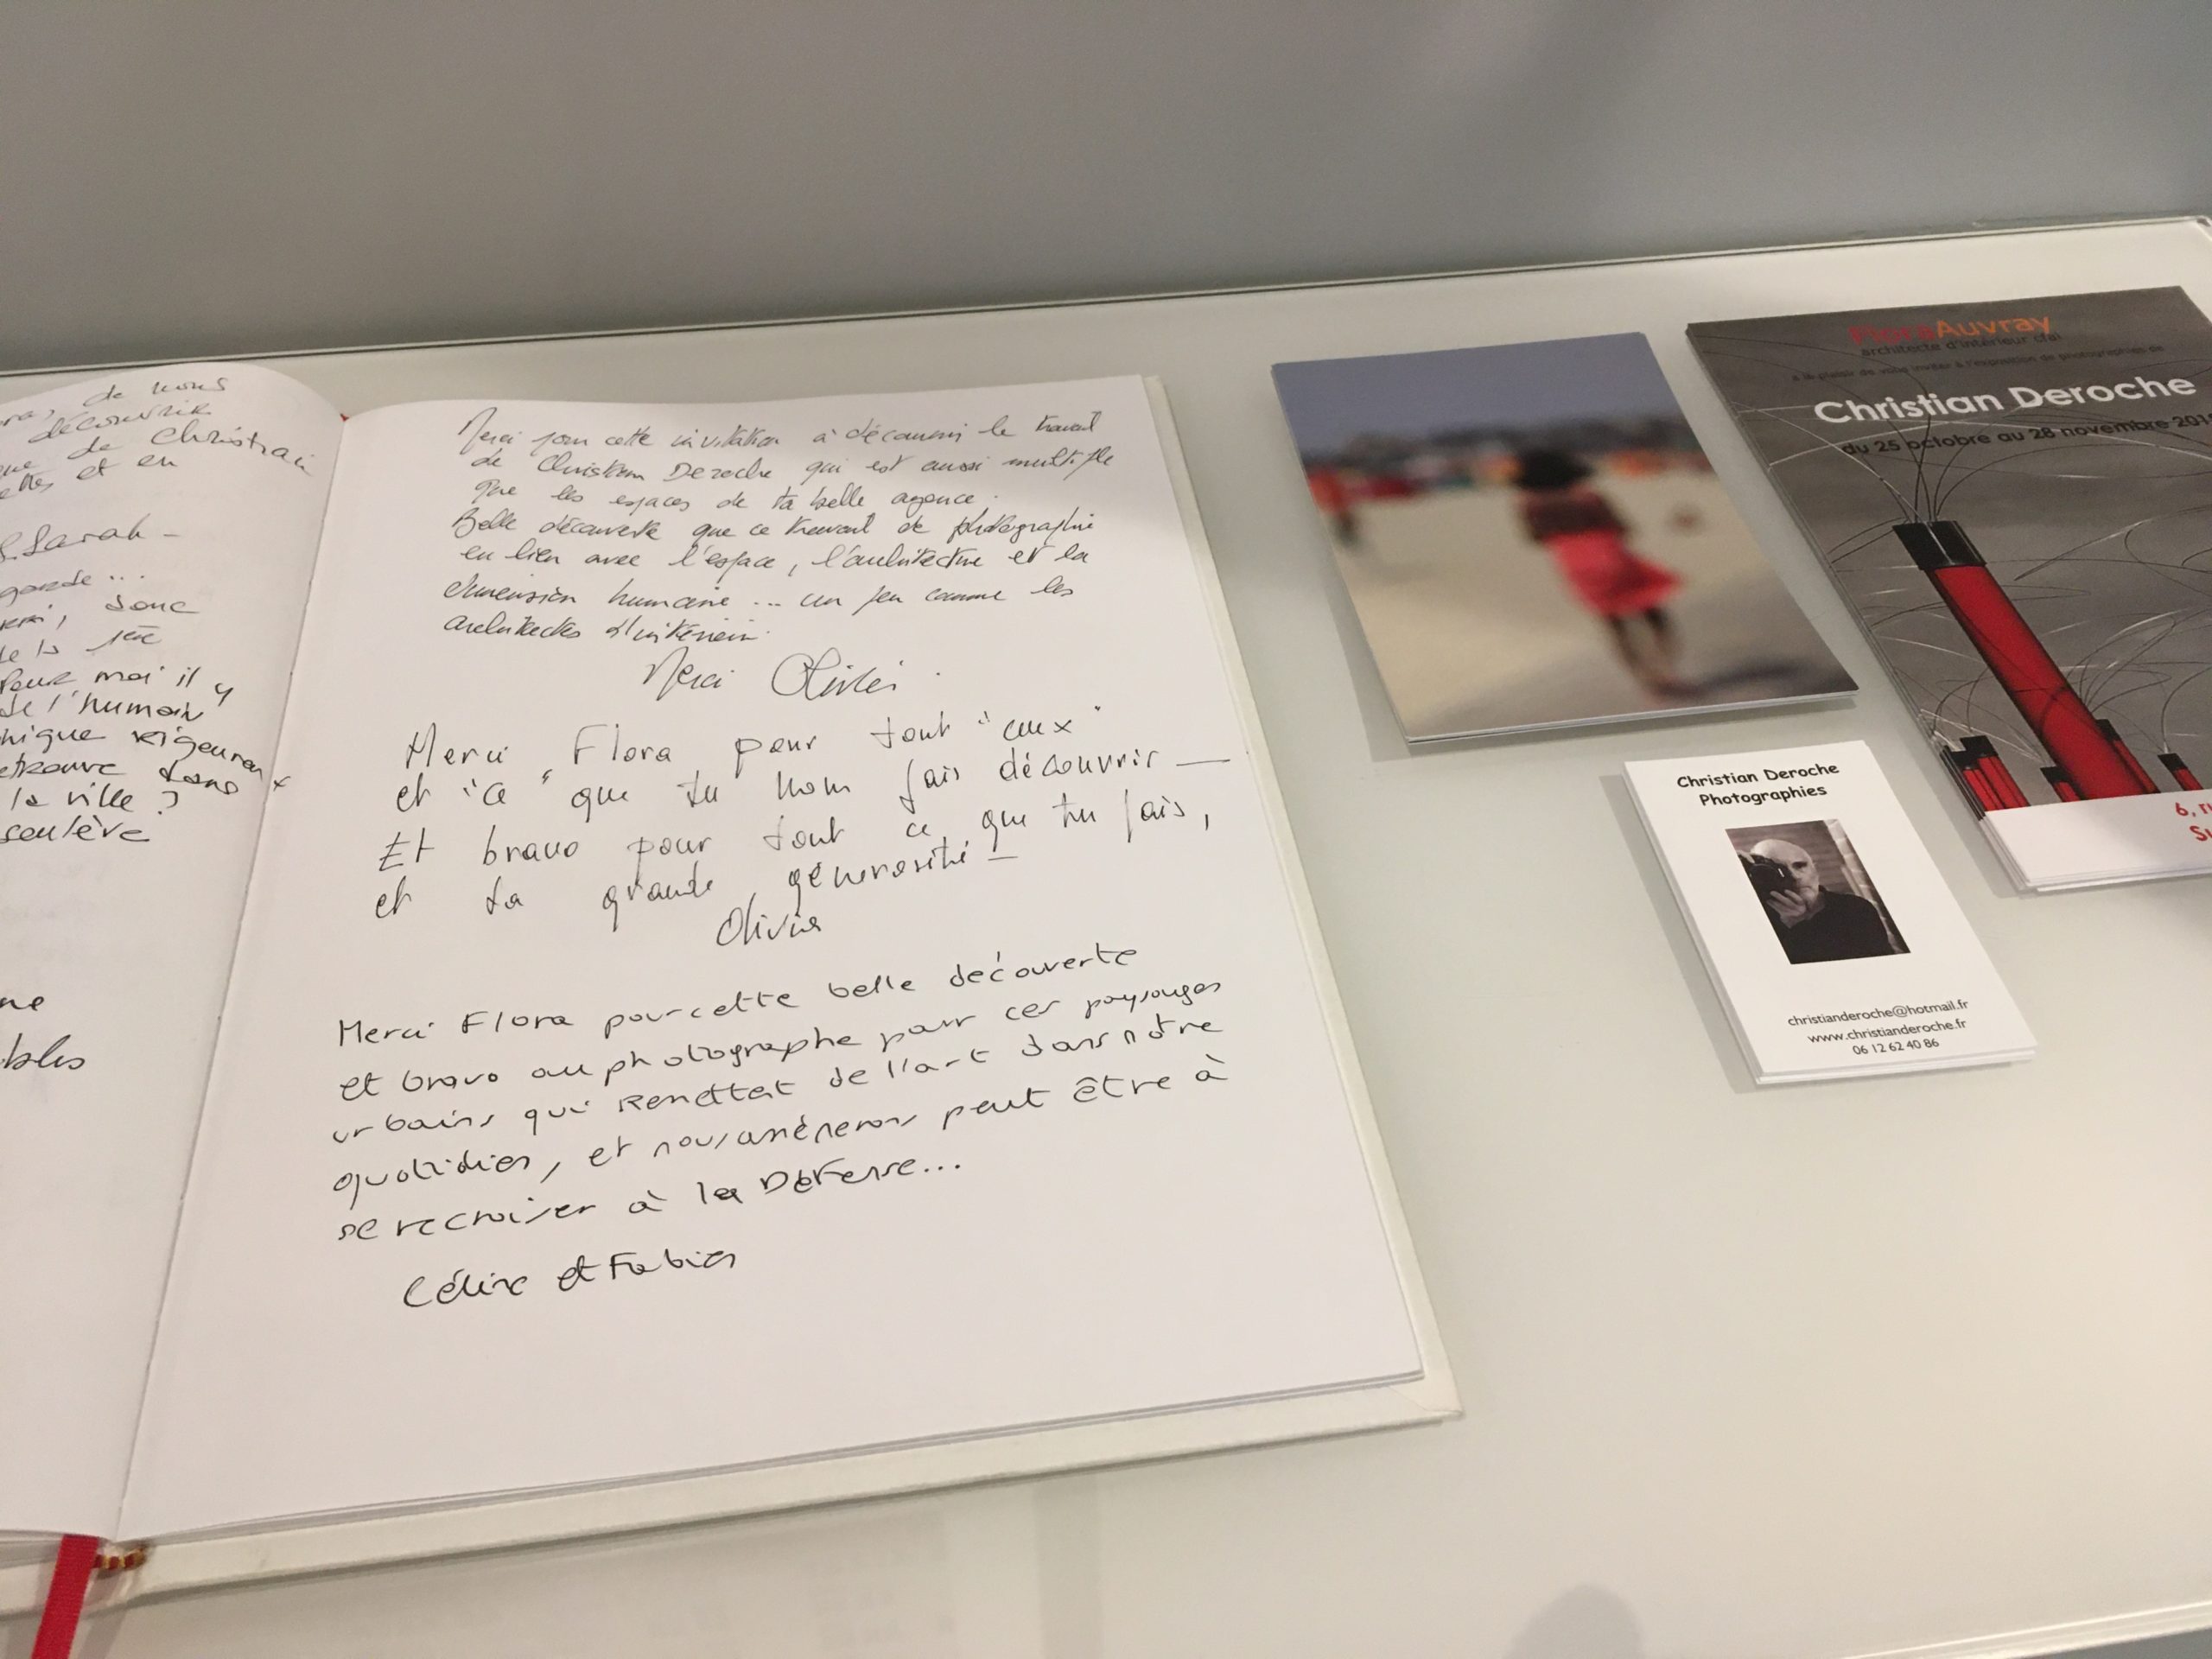 de nous
découvrir
de Christian
et en
Sarah -
garde...
donc
de la 1ère
Pour moi il y
de l'humain
rigoureux
dans
la ville ?
soulève
ne
bles
Merci pour cette invitation à découvrir le travail
de Christian Deroche qui est aussi multiple
que les espaces de ta belle agence.
Belle découverte que ce travail de photographie
en lien avec l'espace, l'architecture et la
dimension humaine ... un peu comme les
architectes d'intérieur.
Merci Olivier.
Merci Flora pour tout "ceux"
et "ce" que tu nous fais découvrir —
Et bravo pour tout ce que tu fais,
et ta grande générosité —
Olivia
Merci Flora pour cette belle découverte
et bravo au photographe pour ces paysages
urbains qui remettent de l'art dans notre
quotidien, et nous amènerons peut être à
se recroiser à la Défense...
Céline et Fabien
FloraAuvray
architecte d'intérieur cfai
a le plaisir de vous inviter à l'exposition de photographies de
Christian Deroche
du 25 octobre au 28 novembre 201
6, r
Su
Christian Deroche
Photographies
christianderoche@hotmail.fr
www.christianderoche.fr
06 12 62 40 86